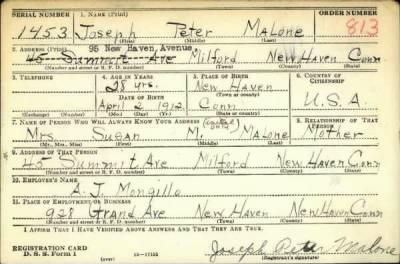 SERIAL NUMBER 1. NAME (Print) ORDER NUMBER
1453 Joseph Peter Malone 813
(First) (Middle) (Last)
2. ADDRESS (Print) 95 New Haven Avenue
45 Summit Ave Milford New Haven Conn
(Number and street or R. F. D. number) (Town) (County) (State)
3. TELEPHONE 4. AGE IN YEARS 5. PLACE OF BIRTH 6. COUNTRY OF CITIZENSHIP
28 yrs. New Haven
DATE OF BIRTH (Town or county)
April 2 1912 Conn U.S.A.
(Exchange) (Number) (Mo.) (Day) (Yr.) (State or country)
7. NAME OF PERSON WHO WILL ALWAYS KNOW YOUR ADDRESS 8. RELATIONSHIP OF THAT PERSON
Mrs. Susan M. Malone Mother
(Mr., Mrs., Miss) (First) (Middle) (Last)
9. ADDRESS OF THAT PERSON
45 Summit Ave Milford New Haven Conn
(Number and street or R. F. D. number) (Town) (County) (State)
10. EMPLOYER'S NAME
A. J. Mongillo
11. PLACE OF EMPLOYMENT OR BUSINESS
928 Grand Ave New Haven New Haven Conn
(Number and street or R. F. D. number) (Town) (County) (State)
I AFFIRM THAT I HAVE VERIFIED ABOVE ANSWERS AND THAT THEY ARE TRUE.
REGISTRATION CARD Joseph Peter Malone
D. S. S. Form 1 (over) (Registrant's signature)